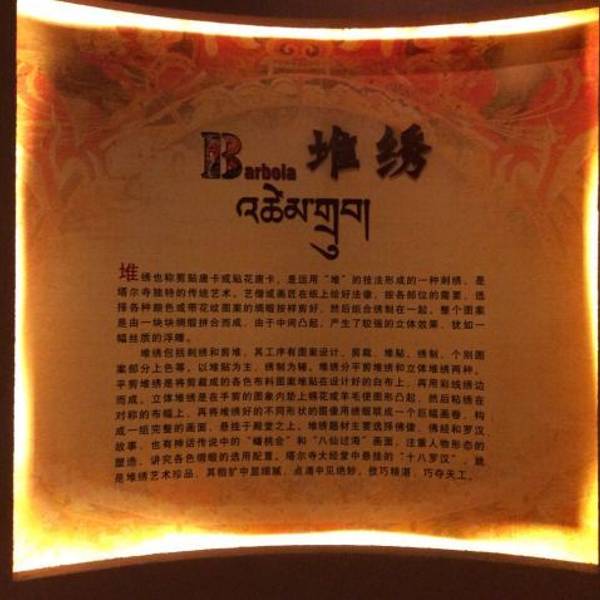 Barbola 堆绣
འཚེམ་གྲུབ།
堆绣也称剪贴唐卡或贴花唐卡，是运用“堆”的技法形成的一种刺绣，是
塔尔寺独特的传统艺术。艺僧或画匠在纸上绘好法像，按各部位的需要，选
择各种颜色或带花纹图案的绸缎按样剪好，然后组合绣制在一起。整个图案
是由一块块绸缎拼合而成，由于中间凸起，产生了较强的立体效果，犹如一
幅丝质的浮雕。
堆绣包括刺绣和剪堆，其工序有图案设计、剪裁、堆贴、绣制、个别图
案部分上色等，以堆贴为主，绣制为辅。堆绣分平剪堆绣和立体堆绣两种。
平剪堆绣是将剪裁成的各色布料图案堆贴在设计好的白布上，再用彩线绣边
而成。立体堆绣是在手剪的图象内垫上棉花或羊毛使图形凸起，然后粘绣在
对称的布幅上，再将堆绣好的不同形状的图像用绣缎联成一个巨幅画卷，构
成一组完整的画面，悬挂于殿堂之上。堆绣题材主要选择佛像、佛经和罗汉
故事，也有神话传说中的“蟠桃会”和“八仙过海”画面，注重人物形态的
塑造，讲究各色绸缎的选用配置。塔尔寺大经堂中悬挂的“十八罗汉”，就
是堆绣艺术珍品，其粗犷中显细腻，点滴中见绝妙，做巧精湛，巧夺天工。